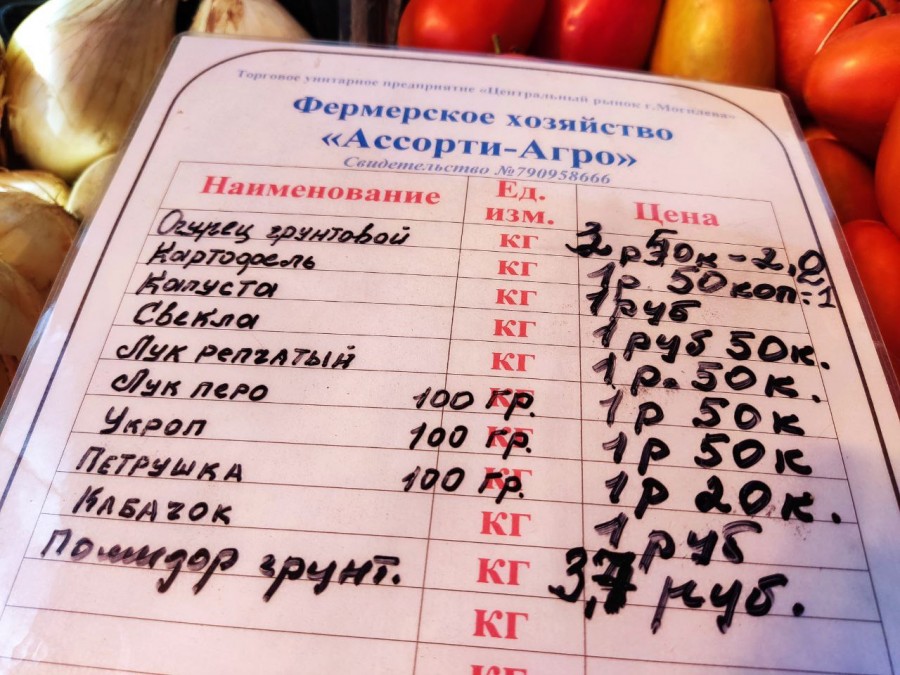 Торговое унитарное предприятие «Центральный рынок г.Могилева»
Фермерское хозяйство
«Ассорти-Агро»
Свидетельство №790958666
Наименование Ед. изм. Цена
Огурец грунтовой кг 50к - 2,0
Картофель кг 1р 50коп=1
Капуста кг 1руб
Свекла кг 1руб 50к.
Лук репчатый кг 1р. 50к.
Лук перо 100 гр. 1р 50к
Укроп 100 гр. 1р 50к
Петрушка 100 гр. 1р 20к.
Кабачок кг 1руб
Помидор грунт. кг 3,7 руб.
кг
кг